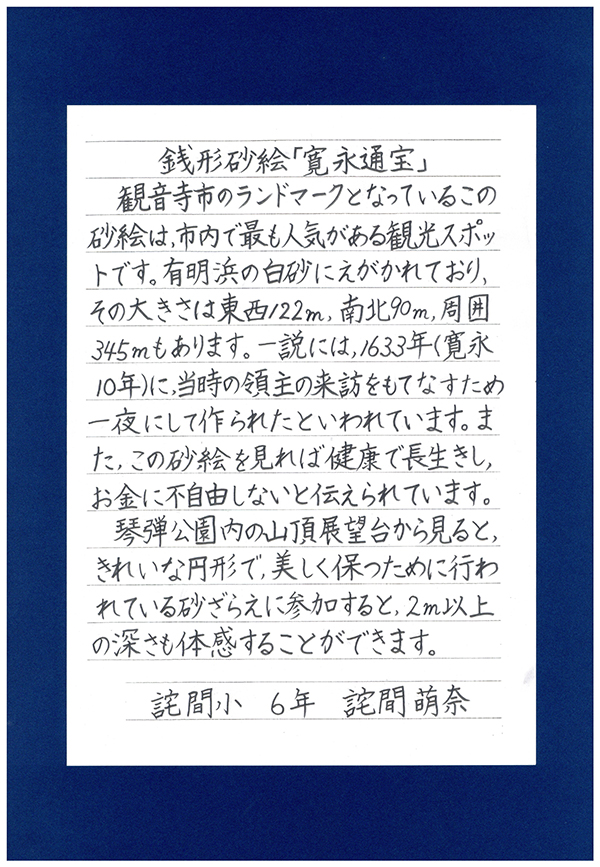 銭形砂絵「寛永通宝」
観音寺市のランドマークとなっているこの
砂絵は,市内で最も人気がある観光スポッ
トです。有明浜の白砂にえがかれており,
その大きさは東西122m,南北90m,周囲
345mもあります。一説には,1633年(寛永
10年)に,当時の領主の来訪をもてなすため
一夜にして作られたといわれています。ま
た,この砂絵を見れば健康で長生きし,
お金に不自由しないと伝えられています。
琴弾公園内の山頂展望台から見ると,
きれいな円形で,美しく保つために行わ
れている砂ざらえに参加すると,2m以上
の深さも体感することができます。
詫間小 6年 詫間萌奈